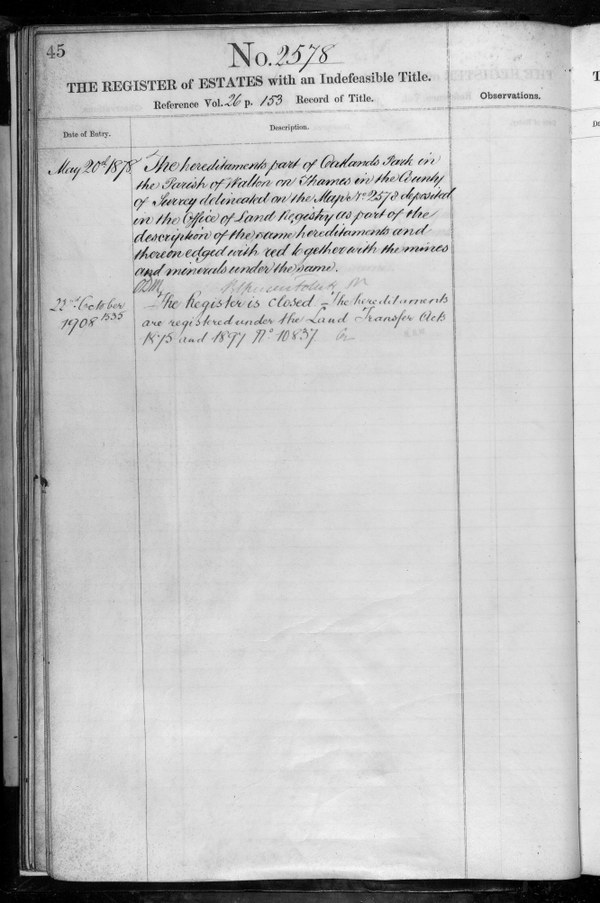 45
No. 2578
THE REGISTER of ESTATES with an Indefeasible Title.
Reference Vol. 26 p. 153 Record of Title.
Observations.
Date of Entry.
Description.
May 20th 1878
The hereditaments part of Oatlands Park in
the Parish of Walton on Thames in the County
of Surrey delineated on the Map No 2578 deposited
in the Office of Land Registry as part of the
description of the same hereditaments and
thereon edged with red together with the mines
and minerals under the same.
22nd October
1908 1535
The Register is closed – The hereditaments
are registered under the Land Transfer Acts
1875 and 1897 No 10837